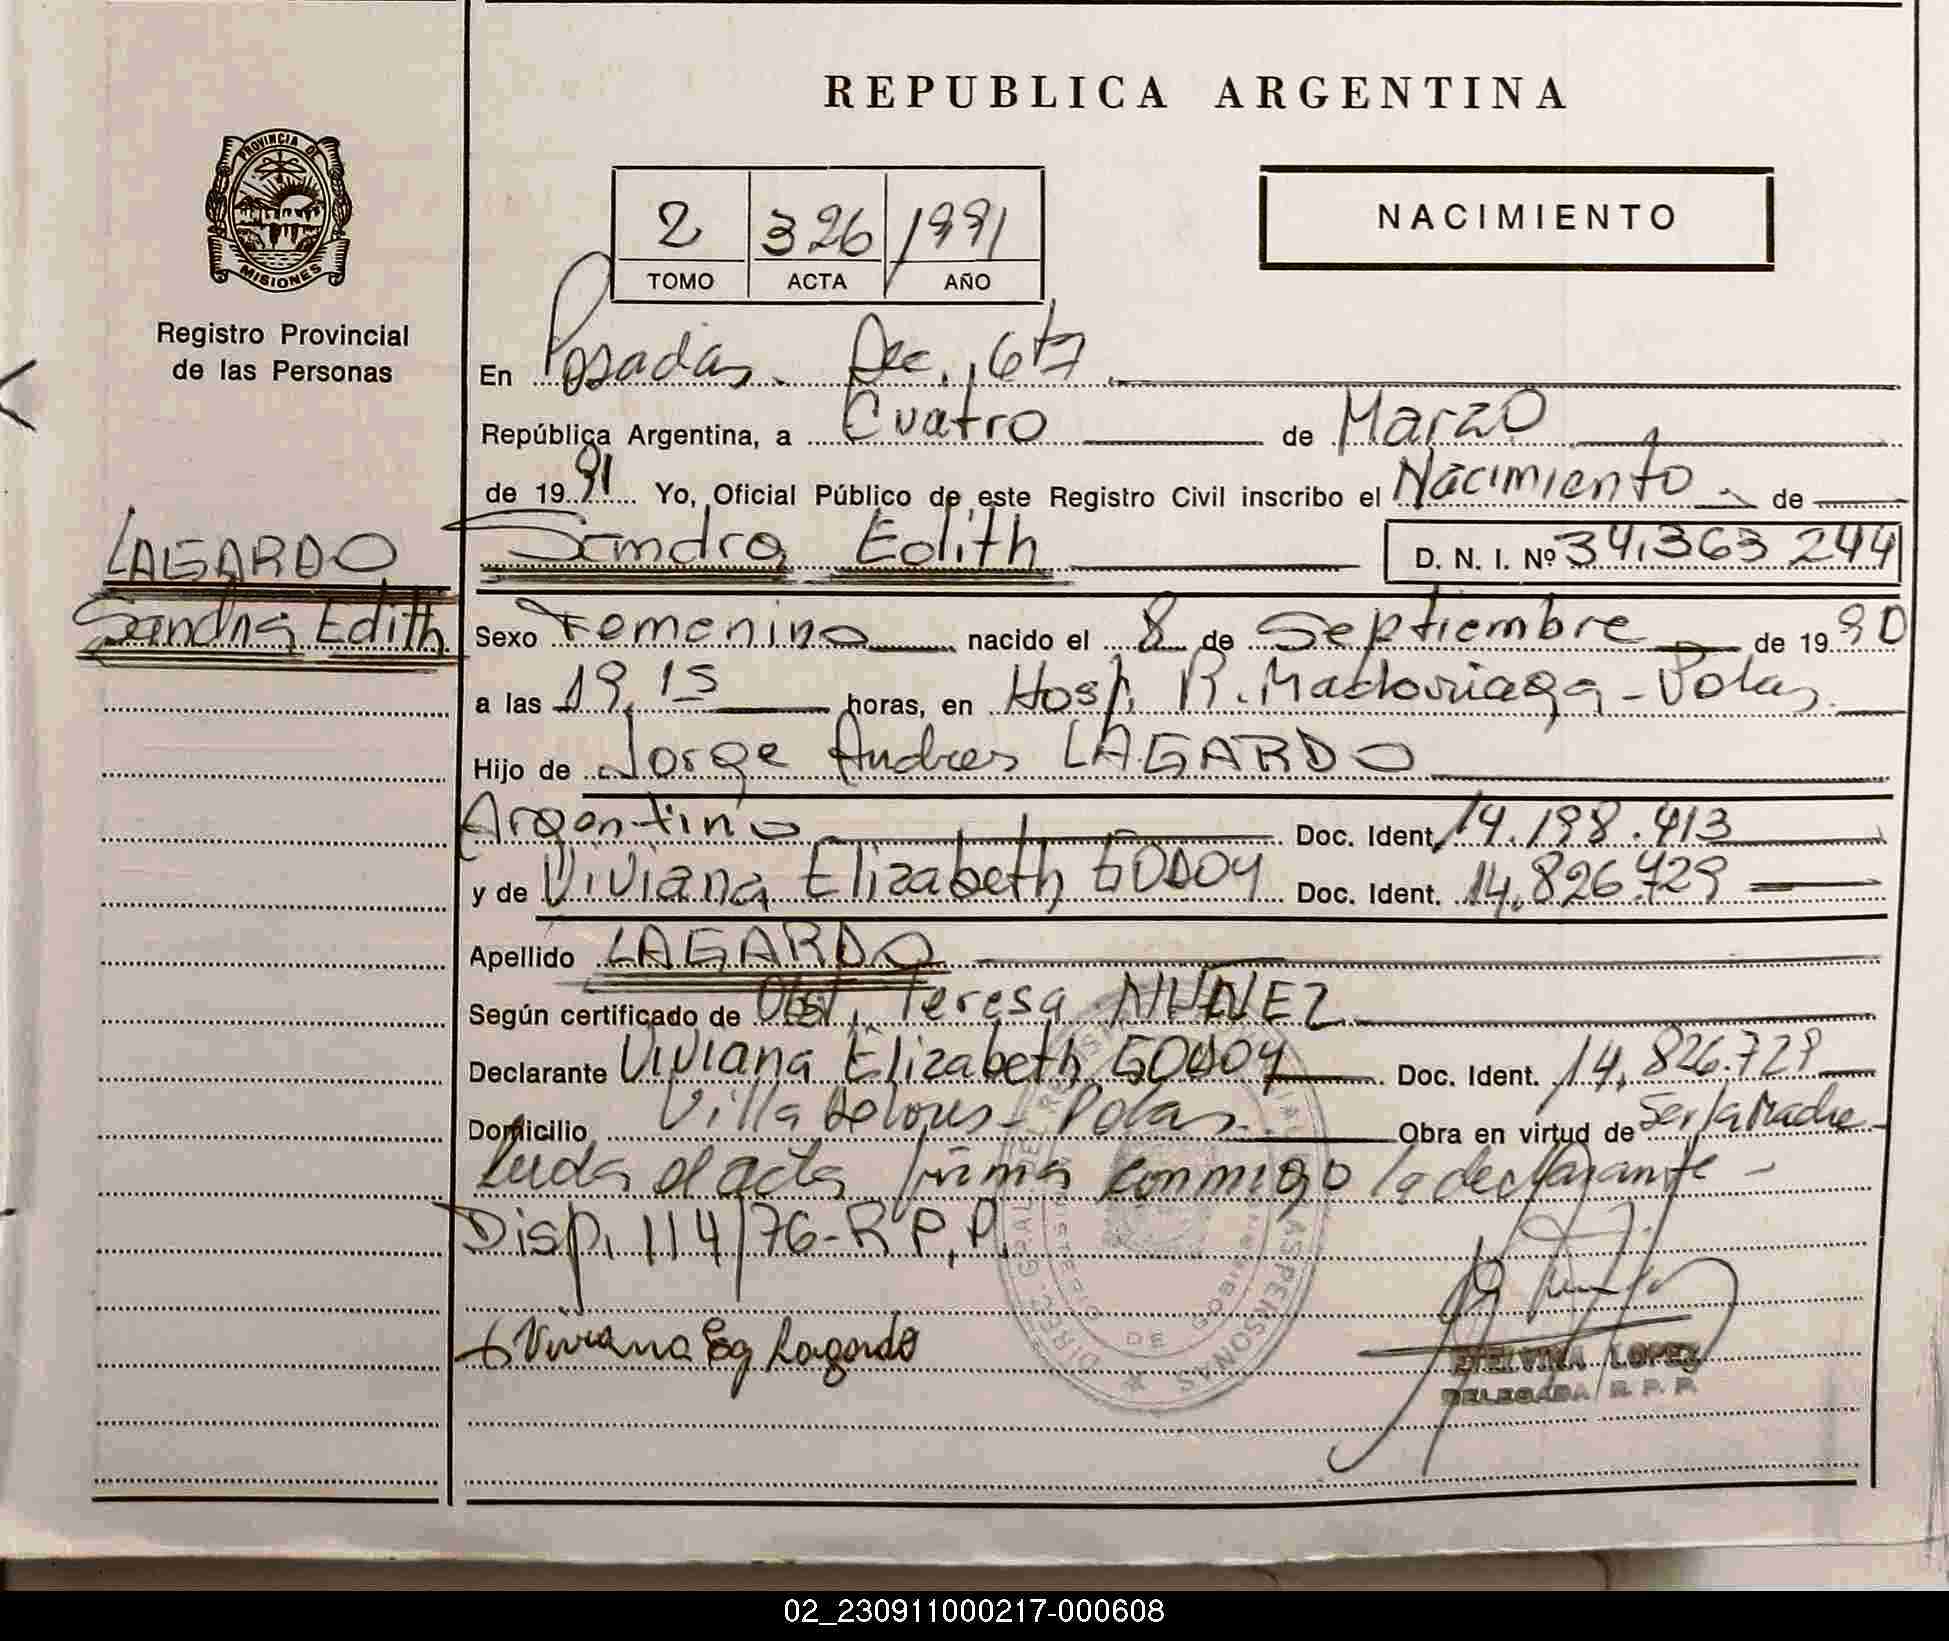 REPUBLICA ARGENTINA
PROVINCIA DE
MISIONES
Registro Provincial
de las Personas
2 326 1991
TOMO ACTA AÑO
NACIMIENTO
En Posadas - Dec. 6
República Argentina, a Cuatro de Marzo
de 1991 Yo, Oficial Público de este Registro Civil inscribo el Nacimiento de
Sandra Edith D. N. I. Nº 34.363 244
LAGARDO
Sandra Edith
Sexo Femenino nacido el 8 de Septiembre de 1990
a las 19,15 horas, en Hosp. R. Madariaga - Pdas.
Hijo de Jorge Andres LAGARDO
Argentino Doc. Ident. 14.198.413
y de Viviana Elizabeth GODOY Doc. Ident. 14.826.729
Apellido LAGARDO
Según certificado de Obst. Teresa NUÑEZ
Declarante Viviana Elizabeth GODOY Doc. Ident. 14.826.729
Domicilio Villa Dolores - Pdas. Obra en virtud de Ser la Madre
Leida el acta firma conmigo la declarante -
Disp. 114/76-R.P.P.
Viviana Lagardo
ETELVINA LOPEZ
DELEGADA R. P. P.
02_230911000217-000608